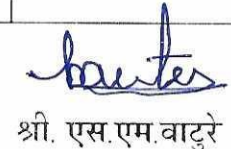 श्री. एस.एम.वाटुरे